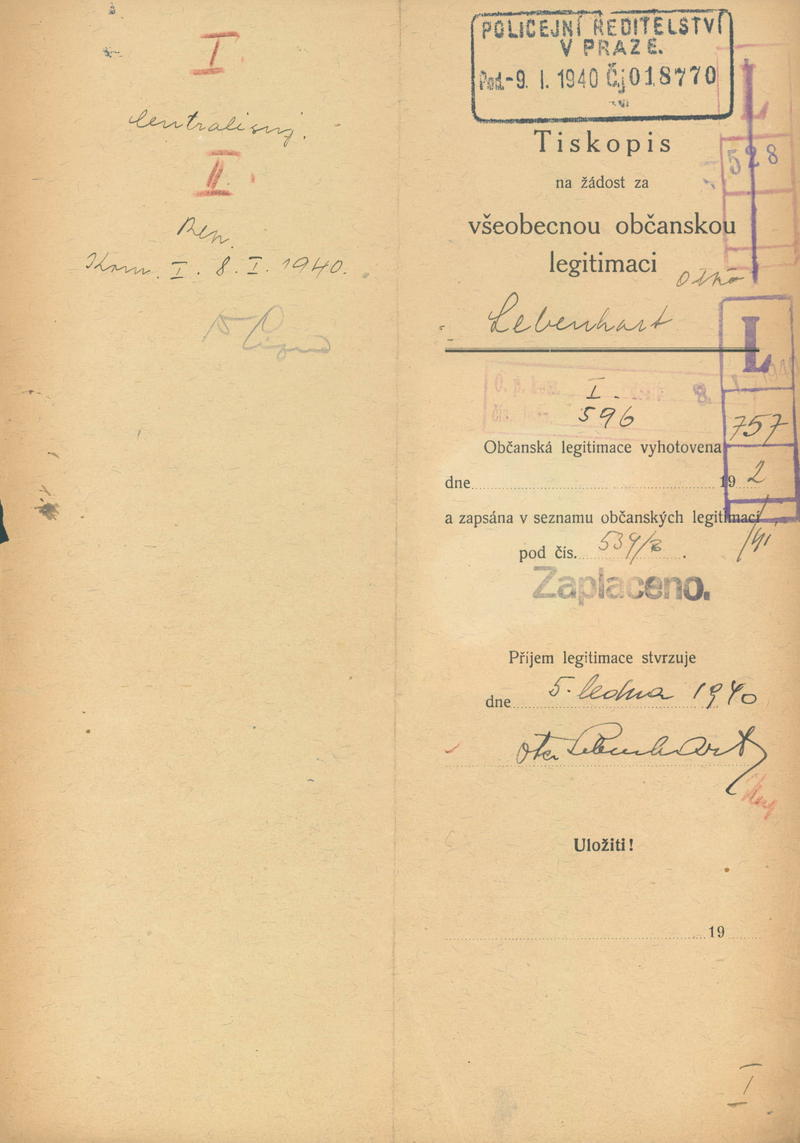 I
II
Ren.
Kom. I. 8. I. 1940.
POLICEJNÍ ŘEDITELSTVÍ
V PRAZE.
Pod. -9. I. 1940 Čj 018770
Tiskopis
na žádost za
všeobecnou občanskou
legitimaci
Lebenhart
L
528
L
757
2
/41
I.
596
Občanská legitimace vyhotovena
dne 19
a zapsána v seznamu občanských legitimací
pod čís. 539/
Zaplaceno.
Příjem legitimace stvrzuje
dne 5. ledna 1940
Ota Lebenhart
Uložiti!
19
I